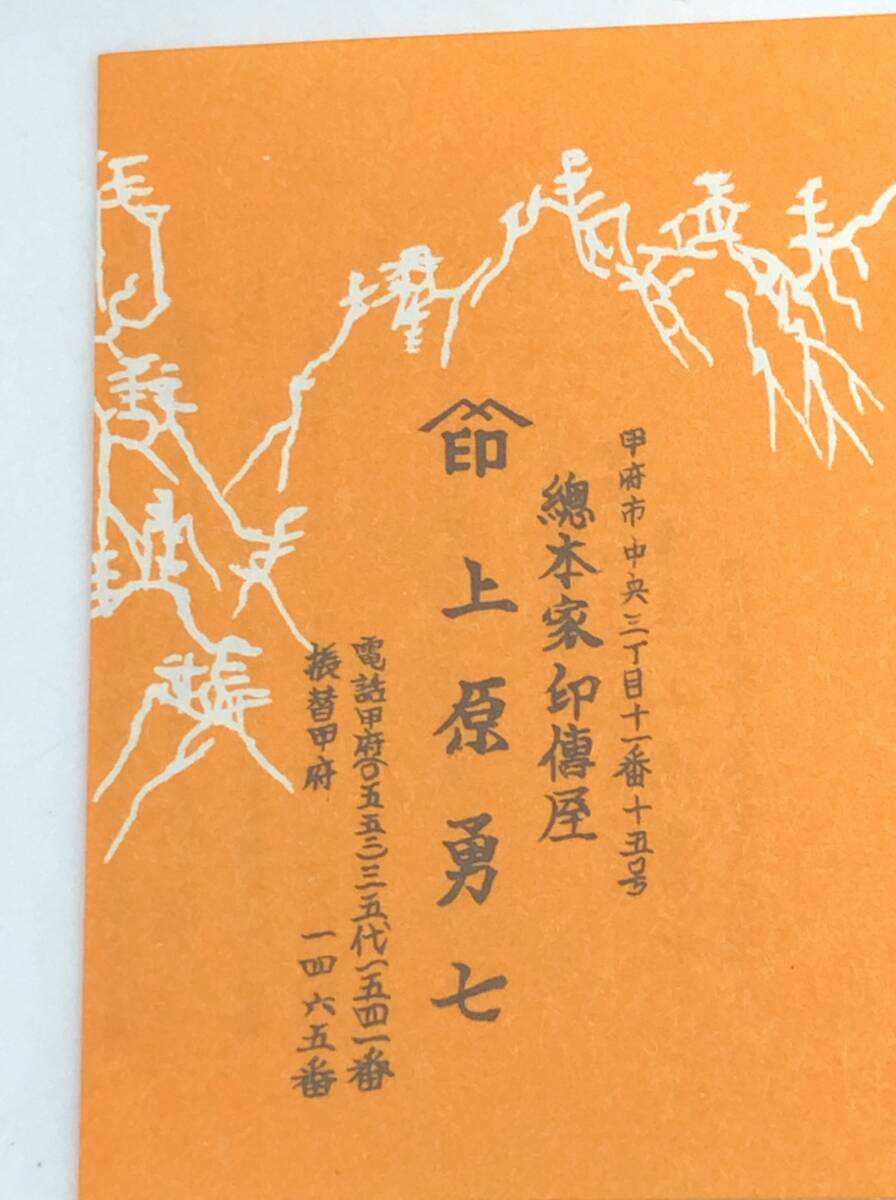 甲府市中央三丁目十一番十五号
總本家印傳屋
印
上原勇七
電話甲府〇五五二)三五代一五四一番
振替甲府 一四六五番